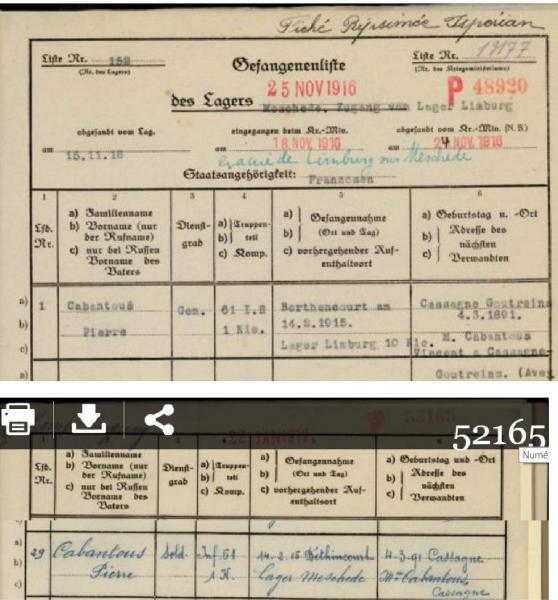 Fiché
Liste Nr. 152
(Nr. des Lagers)
Gefangenenliste
Liste Nr. 19177
(Nr. des Kriegsministeriums)
25 NOV 1916
P 48920
des Lagers Meschede, Zugang von Lager Limburg
abgesandt vom Lag.
am 15.11.16
eingegangen beim Kr.-Min.
am 18. NOV. 1916
abgesandt vom Kr.-Min. (N. B.)
am 24 NOV. 1916
Evacué de Limburg sur Meschede
Staatsangehörigkeit: Franzosen
1
2
3
4
5
6
Lfd. Nr.
a) Familienname
b) Vorname (nur der Rufname)
c) nur bei Russen Vorname des Vaters
Dienst-
grad
a) Truppen-
b) teil
c) Komp.
a) Gefangennahme
b) (Ort und Tag)
c) vorhergehender Auf-
enthaltsort
a) Geburtstag u. -Ort
b) Adresse des
nächsten
c) Verwandten
a)
b)
c)
1
Cabantous
Pierre
Gem.
61 I.R
1 Kie.
Berthencourt am
14.2.1915.
Lager Limburg 10 Kie.
Cassagne Goutreins
4.3.1891.
M. Cabantous
Vincent a Cassagne
Goutreins. (Avey
a)
52165
52165
Numé
22 JAN 1917
Lfd.
Nr.
a) Familienname
b) Vorname (nur
der Rufname)
c) nur bei Russen
Vorname des
Vaters
Dienst-
grad
a) Truppen-
b) teil
c) Komp.
a) Gefangennahme
b) (Ort und Tag)
c) vorhergehender Auf-
enthaltsort
a) Geburtstag und -Ort
b) Adresse des
nächsten
c) Verwandten
a)
b)
c)
29
Cabantous
Pierre
Sold.
Inf. 61
1 K.
14.2.15 Béthincourt
Lager Meschede
4.3.91 Cassagne
Cabantous,
Cassagne